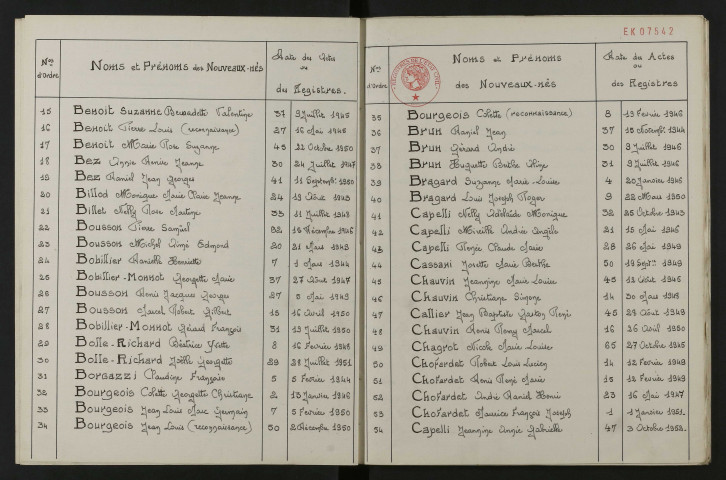 EK07542
Nos d'Ordre Noms et Prénoms des Nouveaux-nés Date du Acte ou du Registres.
15 Benoit Suzanne Bernadette Valentine 37 9 Juillet 1945
16 Benoit Pierre Louis (reconnaissance) 27 16 Mai 1946
17 Benoit Marie Rose Suzanne 45 22 Octobre 1950
18 Bez Annie Renée Jeanne 30 24 Juillet 1947
19 Bez Daniel Jean Georges 41 11 Septemb. 1950
20 Billod Monique Marie Claire Jeanne 24 19 Août 1943
21 Billet Nelly Rose Martine 33 11 Juillet 1949
22 Bousson Pierre Samuel 82 15 Décembre 1946
23 Bousson Michel Aimé Edmond 20 21 Mars 1949
24 Bobillier Danielle Henriette 7 1 Mars 1944
25 Bobillier-Monnot Georgette Marie 37 27 Août 1947
26 Bousson Denis Jacques Georges 27 5 Mai 1949
27 Bousson Marcel Robert Gilbert 15 16 Avril 1950
28 Bobillier-Monnot Gérard François 31 19 Juillet 1950
29 Bolle-Richard Béatrice 8 16 Février 1948
30 Bolle-Richard Joëlle Georgette 29 28 Juillet 1951
31 Borgazzi Claudine Françoise 5 5 Février 1944
32 Bourgeois Colette Georgette Christiane 2 13 Janvier 1946
33 Bourgeois Jean Louis Marc Germain 7 5 Février 1950
34 Bourgeois Jean Louis (reconnaissance) 50 2 Décembre 1950
Nos d'Ordre Noms et Prénoms des Nouveaux-nés Date du Actes ou des Registres
35 Bourgeois Colette (reconnaissance) 8 13 Février 1946
36 Brun Daniel Jean 37 15 Novemb. 1944
37 Brun Gérard André 30 9 Juillet 1946
38 Brun Huguette Berthe Aline 31 9 Juillet 1946
39 Bragard Suzanne Marie Louise 4 20 Janvier 1946
40 Bragard Louis Joseph Roger 9 22 Mars 1950
41 Capelli Nelly Adélaïde Monique 32 25 Octobre 1943
42 Capelli Mireille Andrée Angèle 21 15 Mai 1946
43 Capelli Renée Claude Marie 28 26 Mai 1949
44 Cassani Josette Marie Berthe 50 19 Septbre 1949
45 Chauvin Jeannine Marie Louise 45 11 Août 1946
46 Chauvin Christiane Simone 14 30 Mars 1948
47 Callier Jean Baptiste Gaston René 45 29 Août 1949
48 Chauvin Denis Rémy Marcel 16 26 Avril 1950
49 Chagrot Nicole Marie Louise 65 27 Octobre 1945
50 Chofardet Robert Louis Lucien 14 12 Février 1949
51 Chofardet Denis René Marie 15 12 Février 1949
52 Chofardet André David Henri 23 16 Mai 1947
53 Chofardet Maurice François Joseph 1 1 Janvier 1951.
54 Capelli Jeannine Annie Gabrielle 47 3 Octobre 1953.